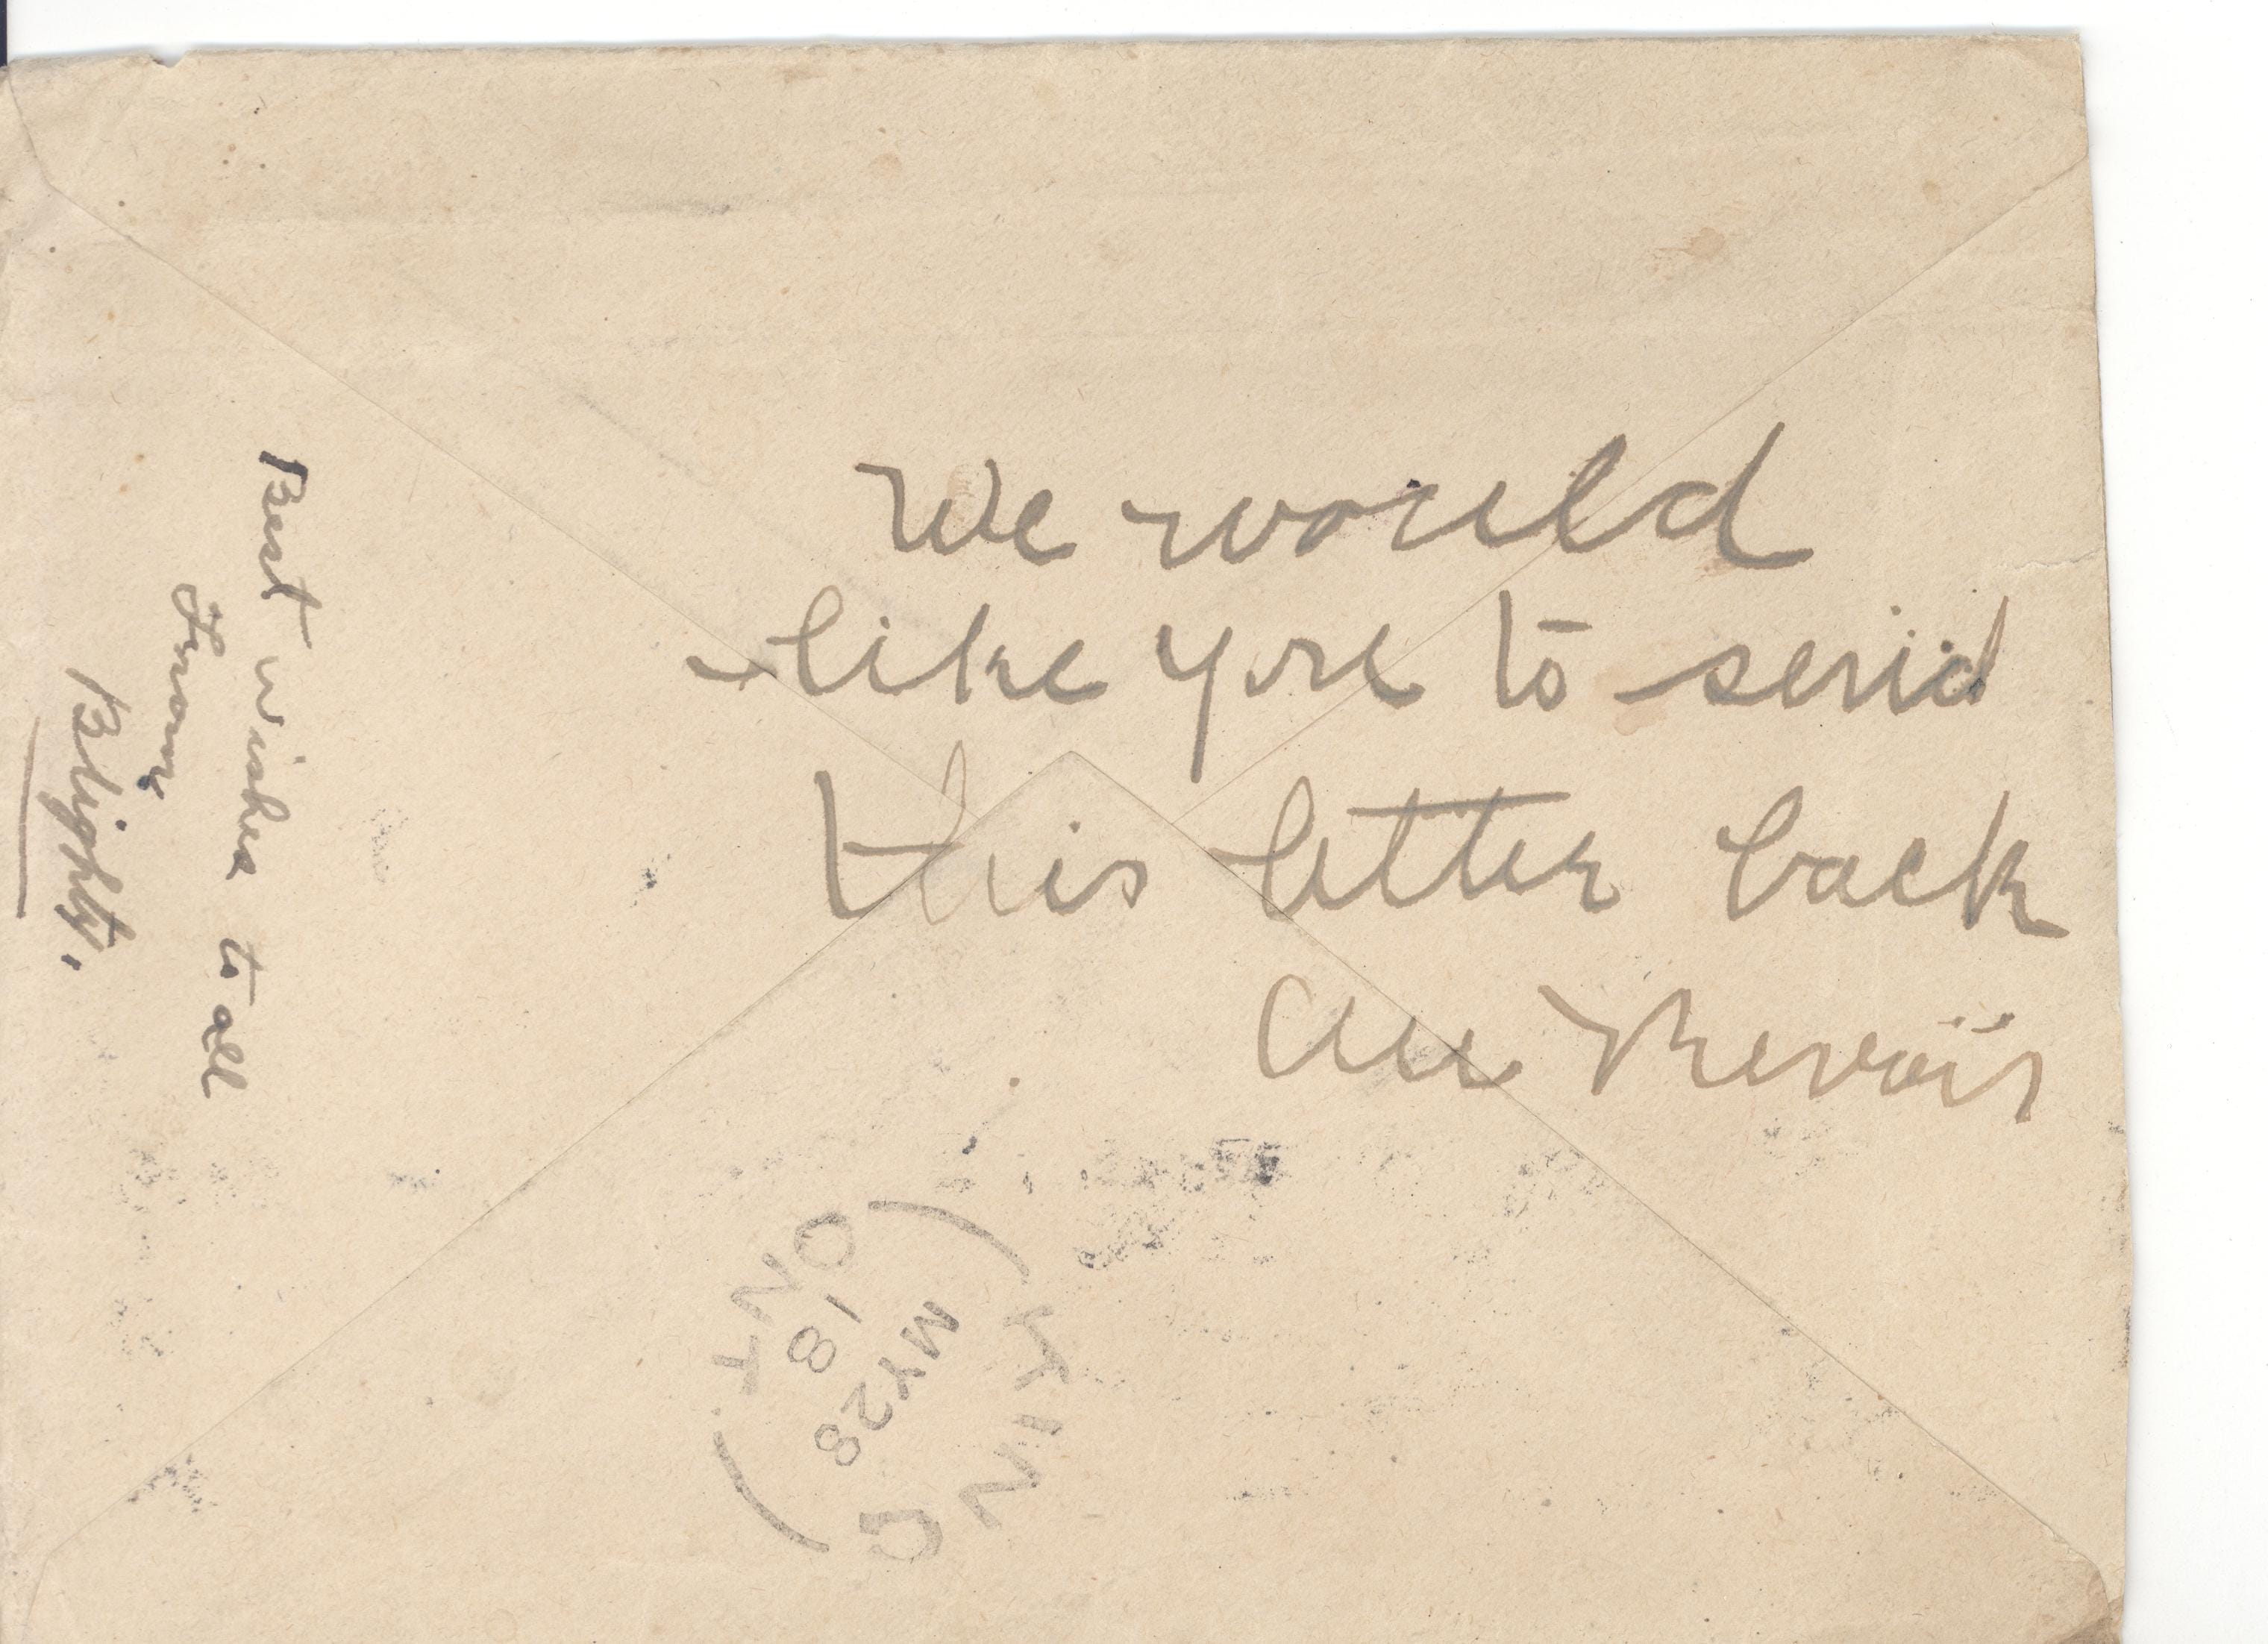 We would
like you to send
this letter back
Au Revoir
Best wishes to all
From
Blighty.
KING
ONT
MY 28
18